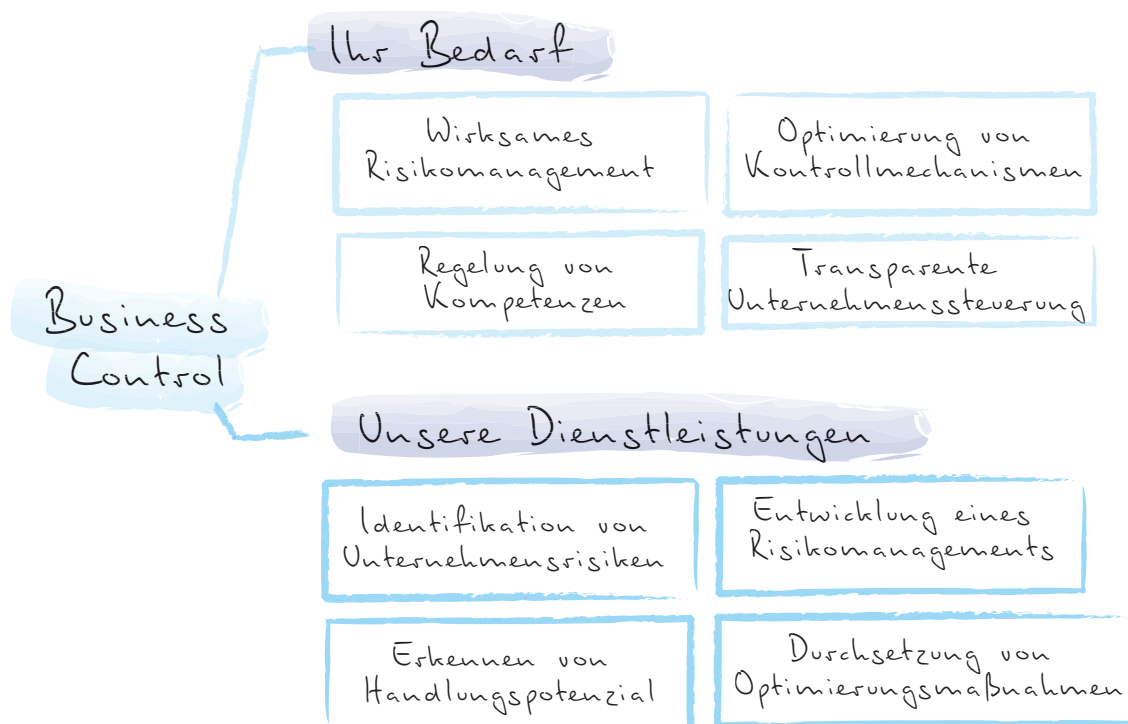 Ihr Bedarf
Wirksames
Risikomanagement
Optimierung von
Kontrollmechanismen
Regelung von
Kompetenzen
Transparente
Unternehmenssteuerung
Business
Control
Unsere Dienstleistungen
Identifikation von
Unternehmensrisiken
Entwicklung eines
Risikomanagements
Erkennen von
Handlungspotenzial
Durchsetzung von
Optimierungsmaßnahmen